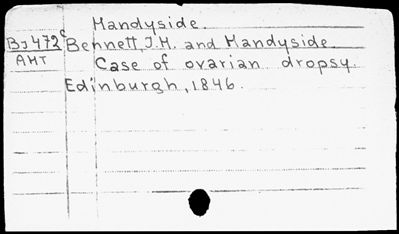 Handyside.
BJ472c Bennett, J.H. and Handyside.
AHT Case of ovarian dropsy.
Edinburgh, 1846.